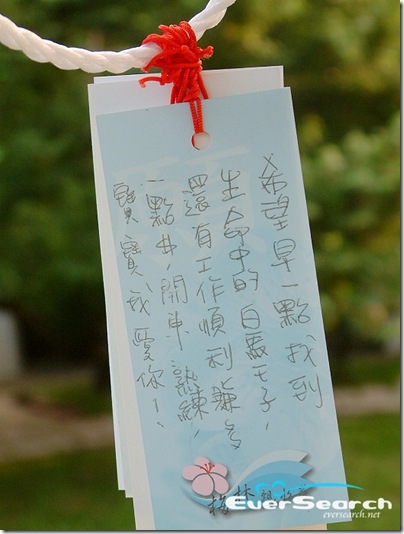 希望早一點找到
生命中的白馬王子，
還有工作順利，賺多
一點井，開車熟練，
寶寶我愛你！、
梅林親水
EverSearch
eversearch.net